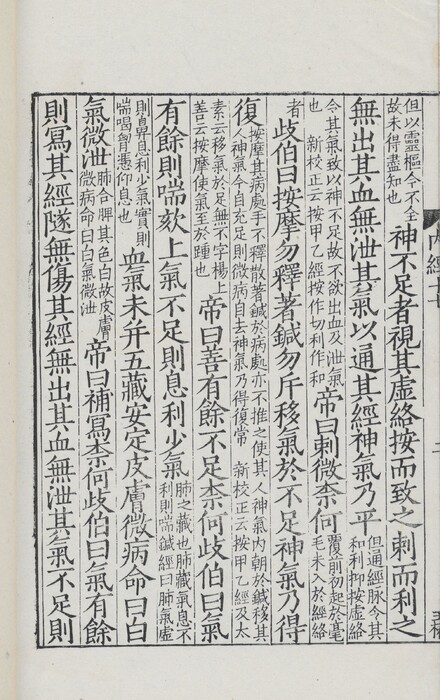 但以靈樞今不全故未得盡知也神不足者視其虛絡按而致之刺而利之
無出其血無泄其氣以通其經神氣乃平但通經脉令其和利抑按虛絡
令其氣致以神不足故不欲出血及泄氣也 新校正云按甲乙經按作切利作和帝曰刺微柰何覆前初起於毫毛未入於經絡
者歧伯曰按摩勿釋著鍼勿斤移氣於不足神氣乃得
復按摩其病處手不釋散著鍼於病處亦不推之使其人神氣內朝於鍼移其人神氣令自充足則微病自去神氣乃得復常 新校正云按甲乙經及太
素云移氣於足無不字楊上善云按摩使氣至於踵也帝曰善有餘不足柰何歧伯曰氣
有餘則喘欬上氣不足則息利少氣肺之藏也肺藏氣息不利則喘鍼經曰肺氣虛
則鼻息利少氣實則喘喝胷憑仰息也血氣未并五藏安定皮膚微病命曰白
氣微泄肺合脾其色白故皮膚微病命曰白氣微泄帝曰補寫柰何歧伯曰氣有餘
則寫其經隧無傷其經無出其血無泄其氣不足則